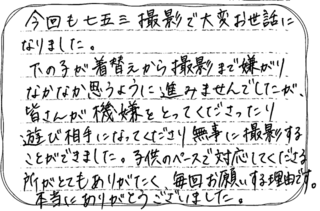 今回も七五三撮影で大変お世話に
なりました。
下の子が着替えから撮影まで嫌がり
なかなか思うように進みませんでしたが、
皆さんが機嫌をとってくださったり
遊び相手になってくださり無事に撮影する
ことができました。子供のペースで対応してくださる
所がとてもありがたく、毎回お願いする理由です。
本当にありがとうございました。